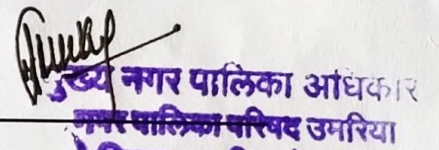 मुख्य नगर पालिका अधिकार
नगर पालिका परिषद उमरिया